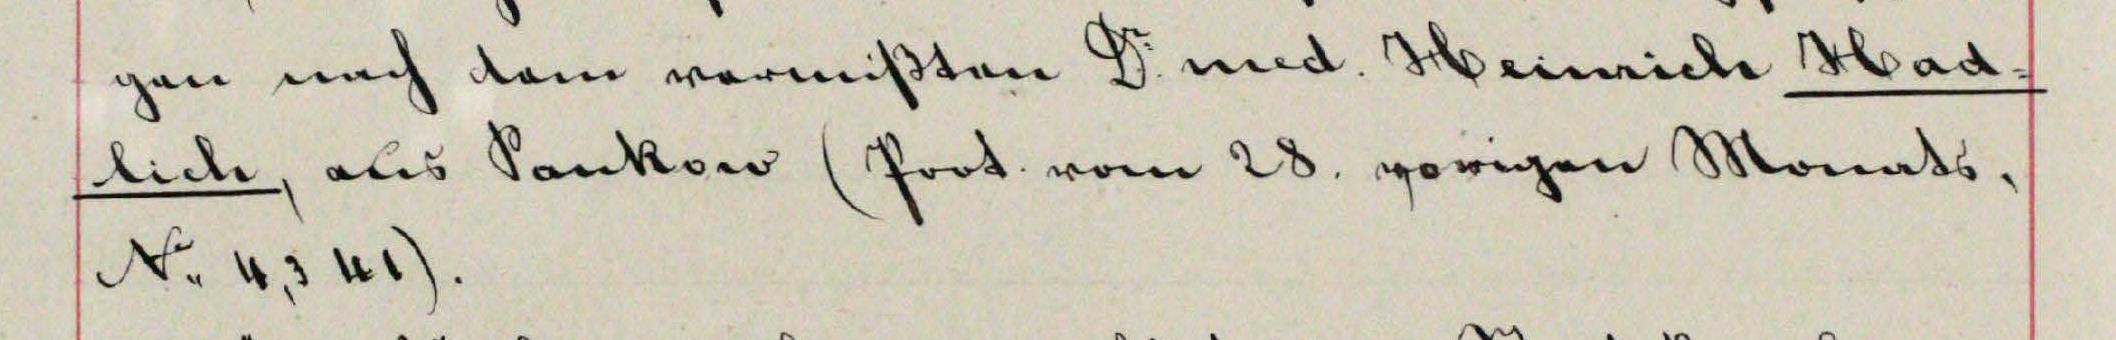 gen nach dem vermißten Dr. med. Heinrich Had-
lich, aus Pankow (Prot. vom 28. vorigen Monats,
No. 4,341).